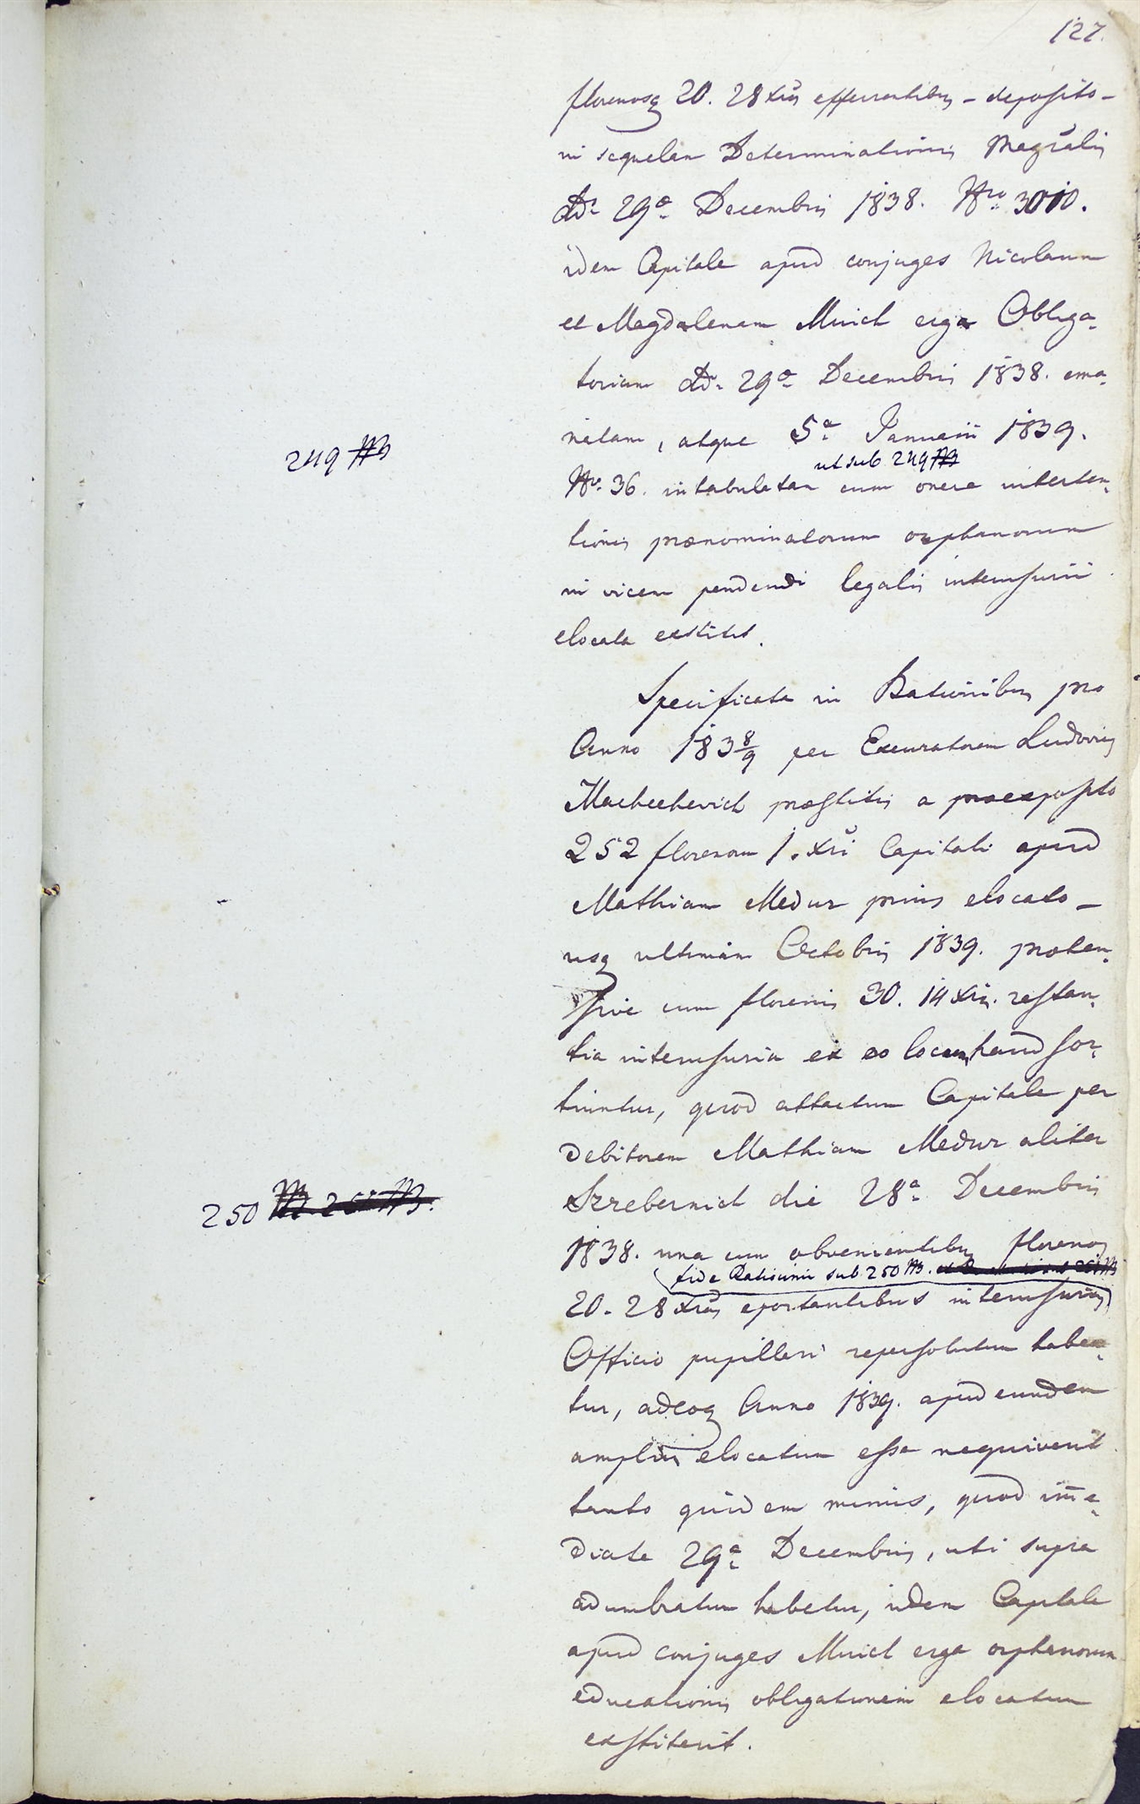 127.
florenosq 20. 28 xris efferentibus – deposito –
in sequelam Determinationis Magralis
ddo 29a Decembris 1838. Nro 3010.
idem Capitale apud conjuges Nicolaum
et Magdalenam Muich erga Obliga-
toriam ddo 29a Decembris 1838. ema-
natam, atque 5a Januarii 1839.
ut sub 249
249
Nro 36. intabulatam cum onere interten-
tionis praenominatorum orphanorum
in vicem pendendi legalis interusurii
elocata exstitit.
Specificata in Rationibus pro
Anno 1838/9 per Excuratorem Ludovicum
praestitis a praeexposito
252 florenorum 1. xri Capitali apud
Mathiam Medur prius elocato –
usq ultimam Octobris 1839. proten-
sive cum florenis 30. 14 xris. restan-
tia interusuria ex eo locum haud sor-
tiuntur, quod attactum Capitale per
debitorem Mathiam Medur aliter
Szrebernich die 28a Decembris
250
1838. una cum obvenientibus florenos
fide Rationis sub 250
20. 28 xris efportantibus interusuriis
Officio pupillari repersolutum habea-
tur, adeoq Anno 1839. apud eundem
amplius elocatum esse nequiverit
tanto quidem minus, quod im̄e-
diate 29a Decembris, uti supra
adumbratum habetur, idem Capitale
apud conjuges Muich erga orphanorum
educationis obligationem elocatum
exstiterit.